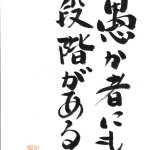 愚か者にも
段階がある